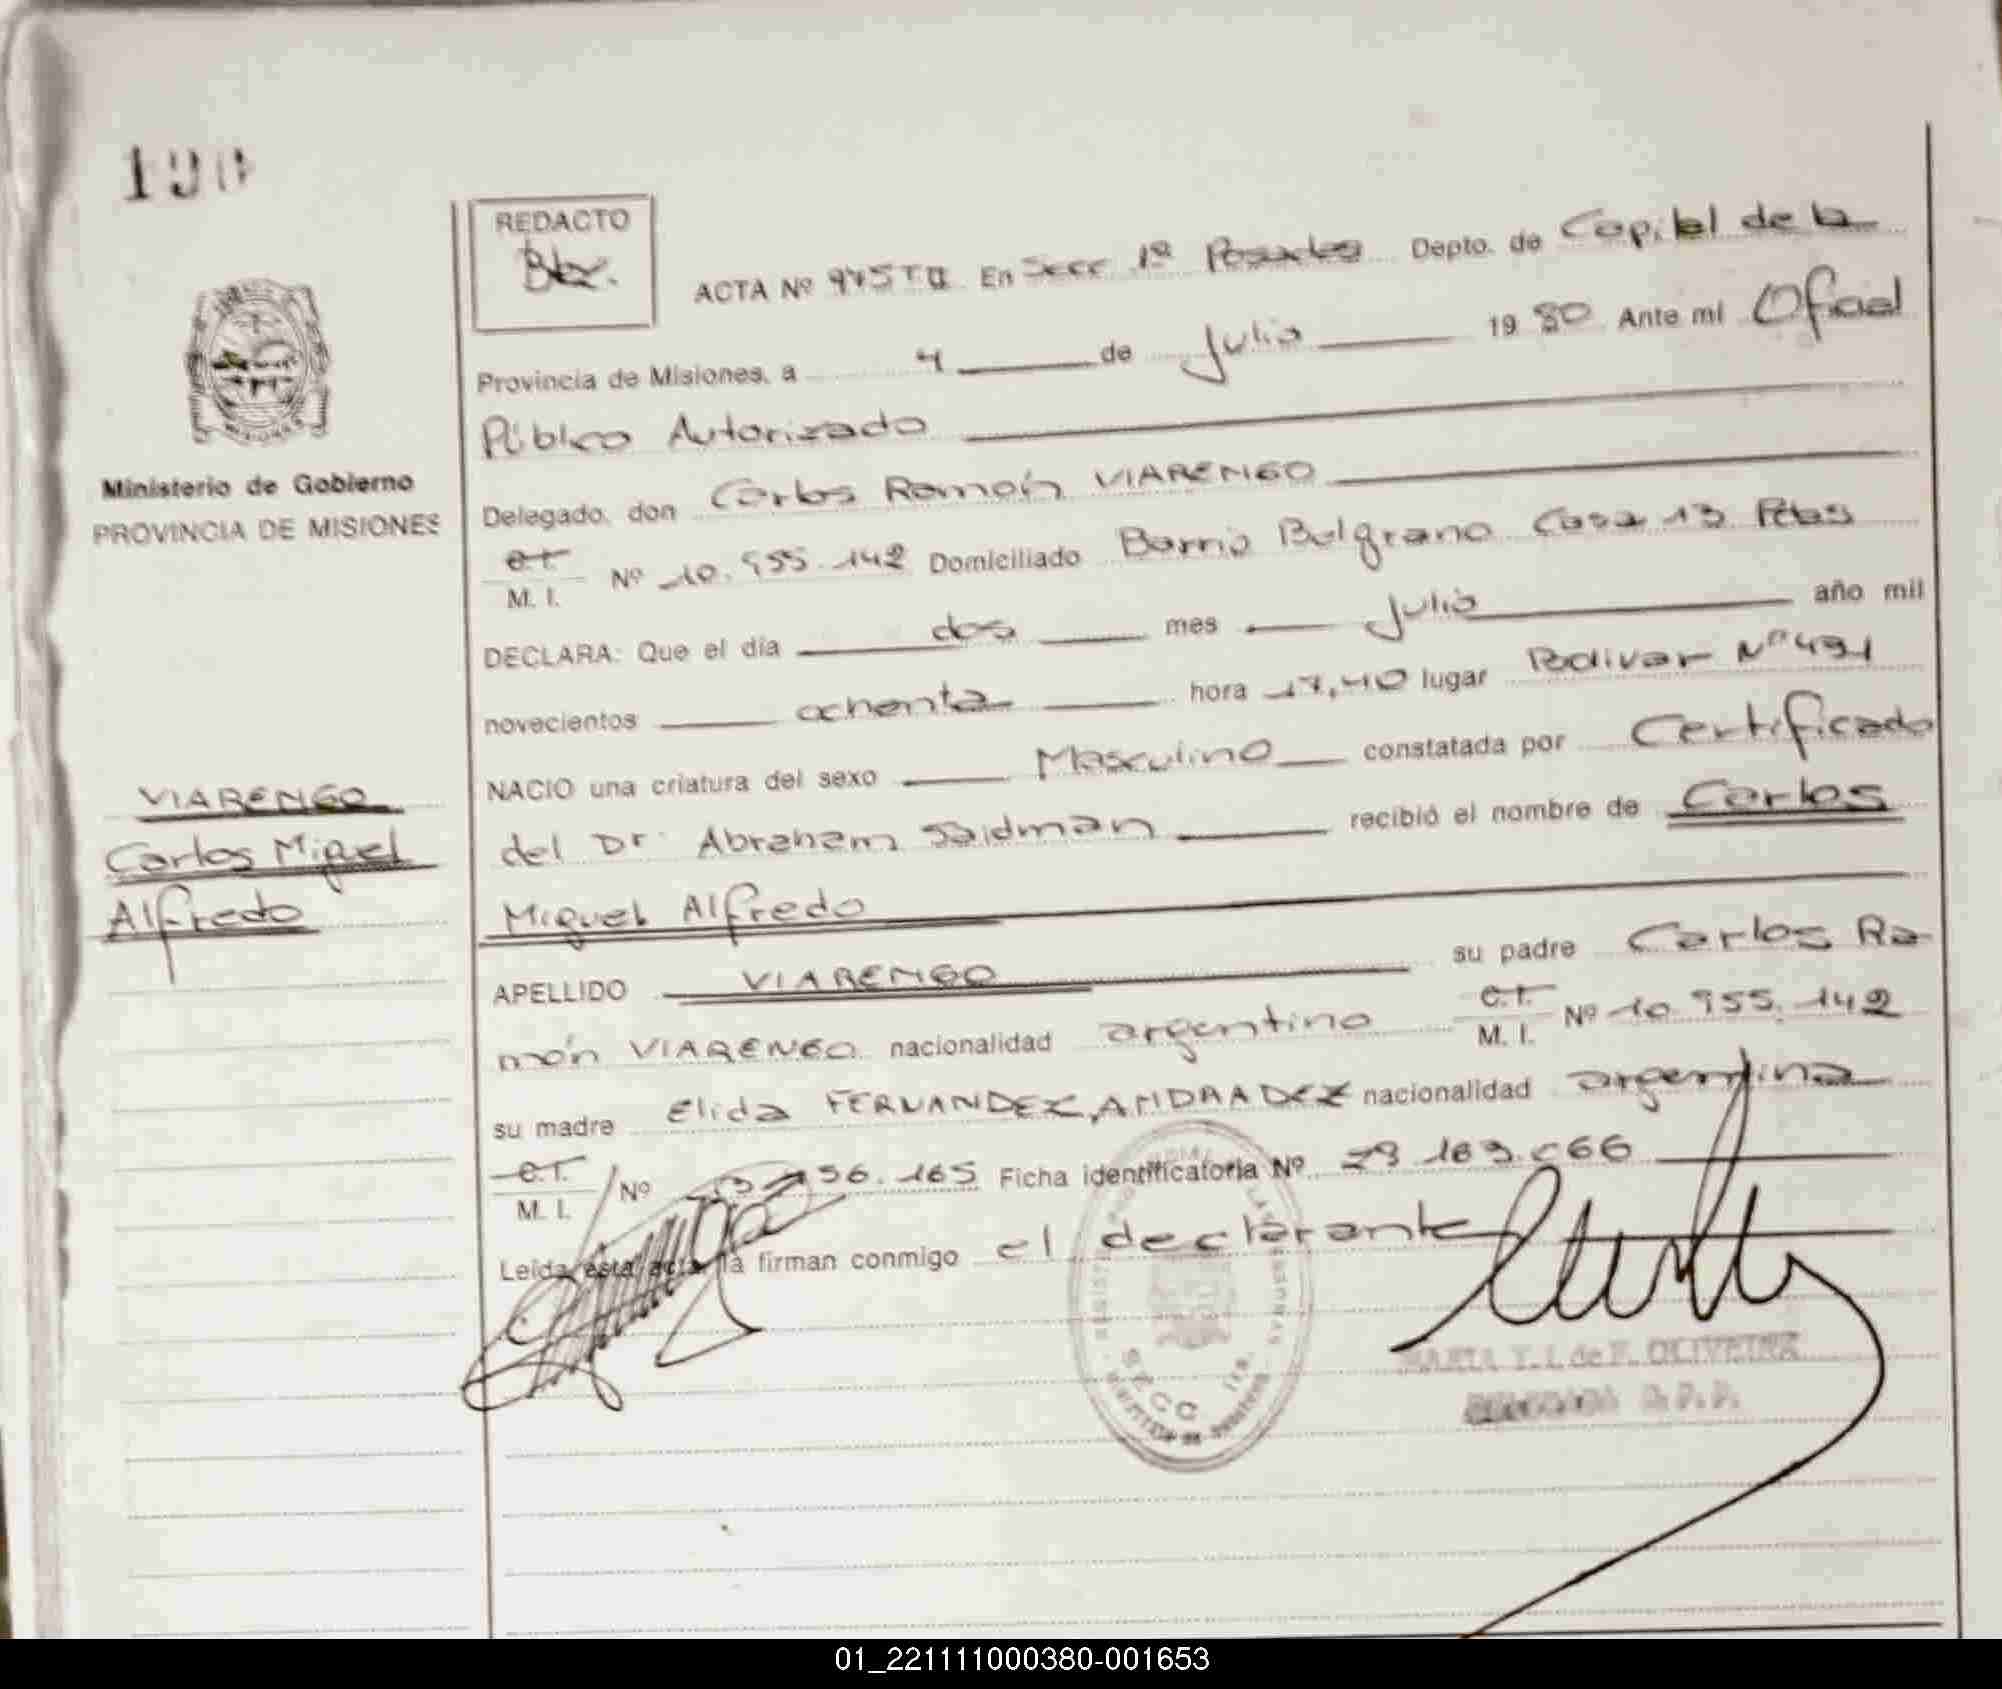 REDACTO
ACTA Nº 975 Tº II En Secc 1ª Posadas Depto. de Capital de la
Provincia de Misiones, a 4 de Julio 1980 Ante mí Oficial
Público Autorizado
Ministerio de Gobierno
PROVINCIA DE MISIONES
Delegado, don Carlos Ramón VIARENGO
C.I. M. I. Nº 10.955.142 Domiciliado Barrio Belgrano Casa 13 Pdas
DECLARA: Que el día dos mes julio año mil
novecientos ochenta hora 17,40 lugar Bolivar Nº 491
NACIO una criatura del sexo Masculino constatada por Certificado
VIARENGO
Carlos Miguel
Alfredo
del Dr. Abraham Saidman recibió el nombre de Carlos
Miguel Alfredo
APELLIDO VIARENGO su padre Carlos Ra-
món VIARENGO nacionalidad argentino C.I. M. I. Nº 10.955.142
su madre Elida FERNANDEZ, nacionalidad argentina
C.I. M. I. Nº 56.165 Ficha identificatoria Nº
Leída esta acta la firman conmigo el declarante
SECC 1ra.
OLIVEIRA
01_221111000380-001653